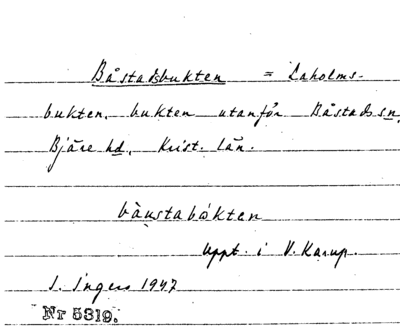 Båstadsbukten = Laholms-
bukten, bukten utanför Båstads sn,
Bjäre hd, Krist. län.
bàu̯stabókten
Uppt. i V. Karup.
I. Ingers 1947
Nr 5319.